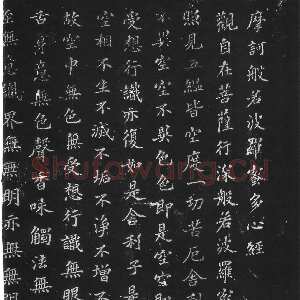 摩訶般若波羅蜜多心經
觀自在菩薩行深般若波羅蜜
照見五蘊皆空度一切苦厄舍利
不異空空不異色色即是空空即
受想行識亦復如是舍利子是
空相不生不滅不垢不淨不增不
故空中無色無受想行識無眼
舌身意無色聲香味觸法無
至無意識界無無明亦無無明
Shufawang.cn